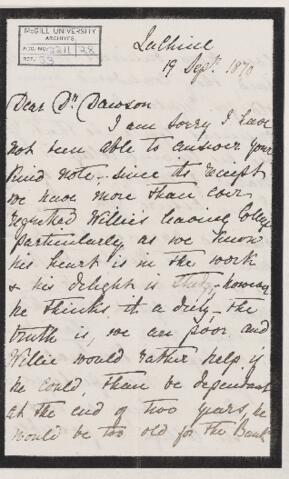 McGILL UNIVERSITY
ARCHIVES
ACC. NO. 2211/28
REF. 33
Lachine
19 Sept. 1870
Dear Dr. Dawson
I am sorry I have
not been able to answer your
kind note - since its receipt
we have more than ever
regretted Willie's leaving College
particularly as we know
his heart is in the work
& his delight is study - however
he thinks it a duty - the
truth is, we are poor and
Willie would rather help if
he could, than be dependant
at the end of two years, he
would be too old for the Bank